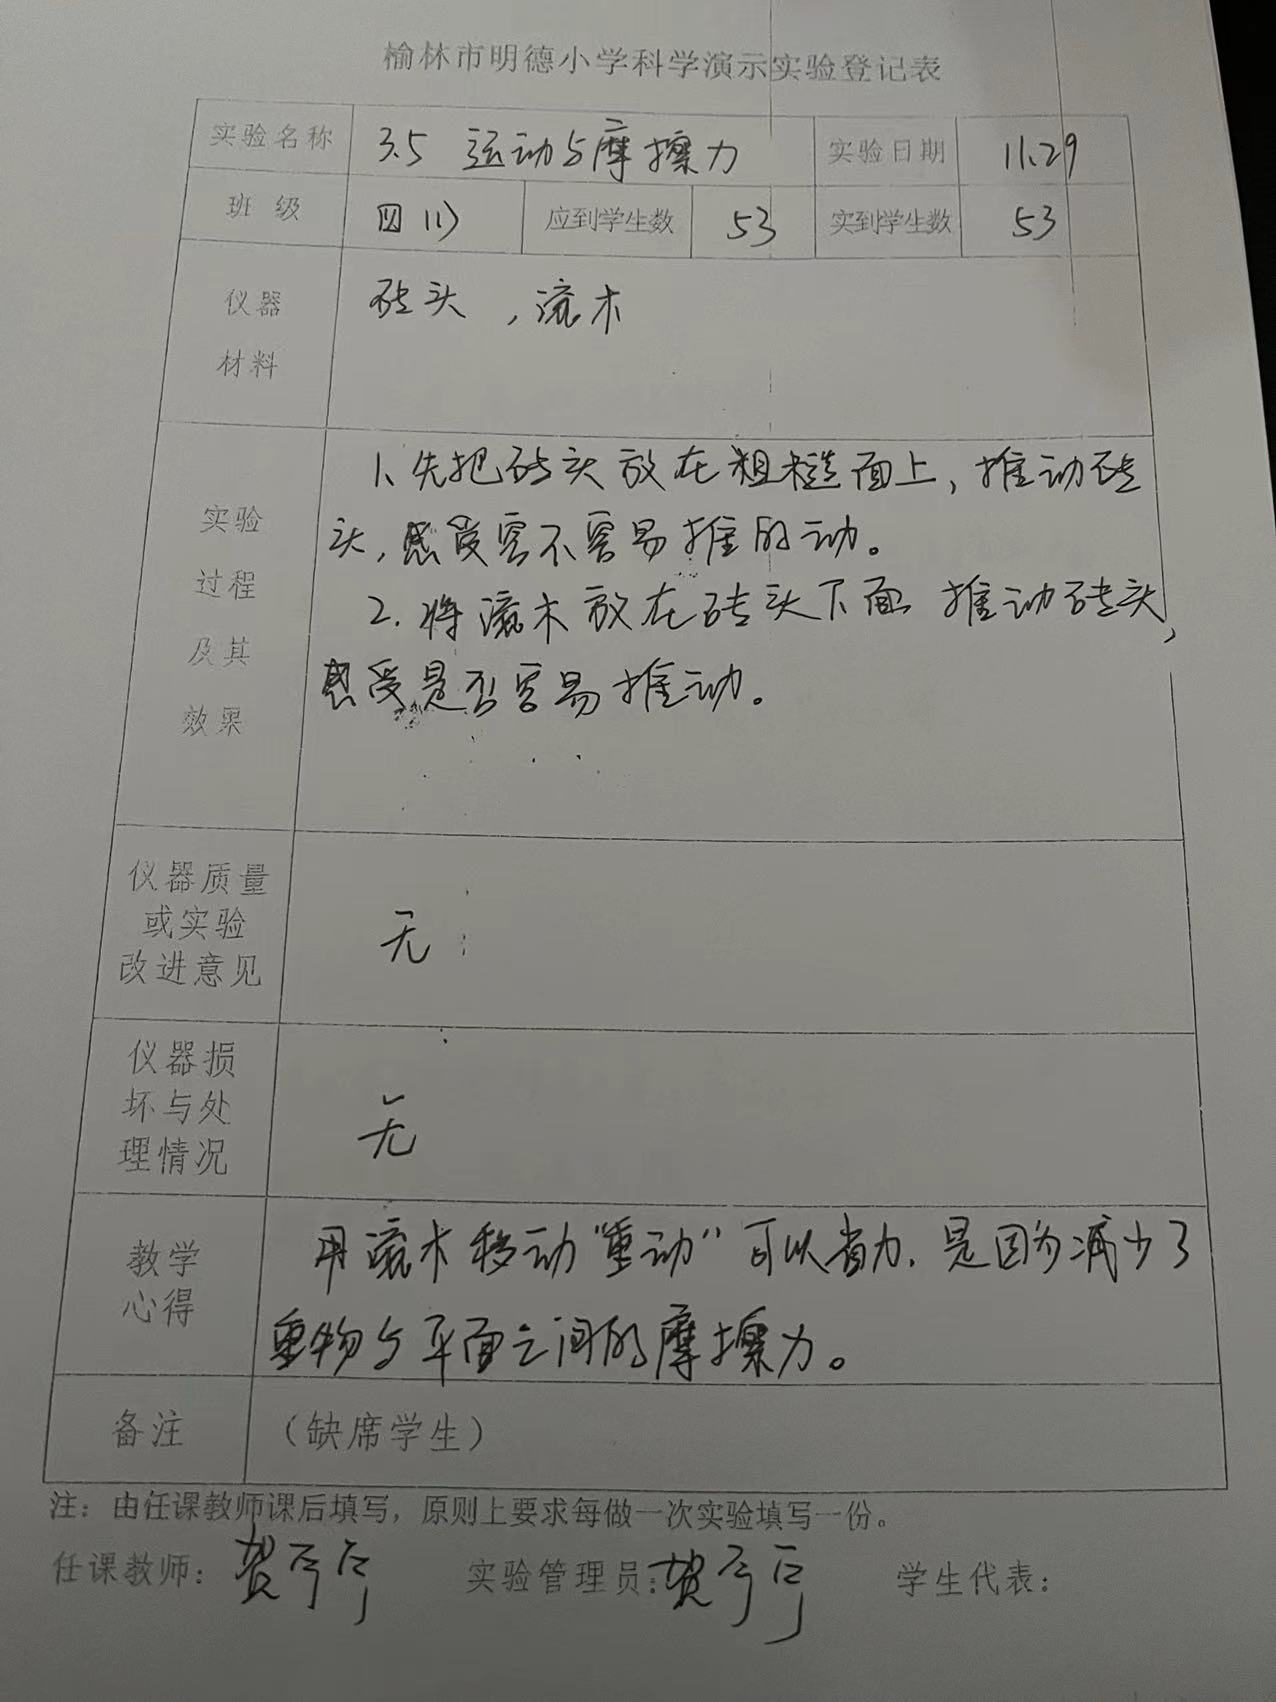 榆林市明德小学科学演示实验登记表
实验名称 3.5 运动与摩擦力 实验日期 11.29
班级 四(1) 应到学生数 53 实到学生数 53
仪器 砖头，流木
材料
1、先把砖头放在粗糙面上，推动砖
实验 头，感受容不容易推的动。
过程 2.将流木放在砖头下面 推动砖头，
及其 感受是否容易推动。
效果
仪器质量
或实验 无
改进意见
仪器损
坏与处 无
理情况
教学 用流木移动“重动”可以省力，是因为减少了
心得 重物与平面之间的摩擦力。
备注 （缺席学生）
注：由任课教师课后填写，原则上要求每做一次实验填写一份。
任课教师： 实验管理员： 学生代表：